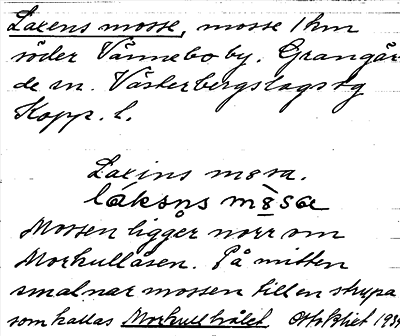 Laxens mosse, mosse 1 km
söder Vännebo by. Grangär
de sn. Västerbergslags tg
Kopp. l.
Laxins mosa.
Mossen ligger norr om
Morkullåsen. På mitten
smalnar mossen till en strupa
som kallas Morkullhålet